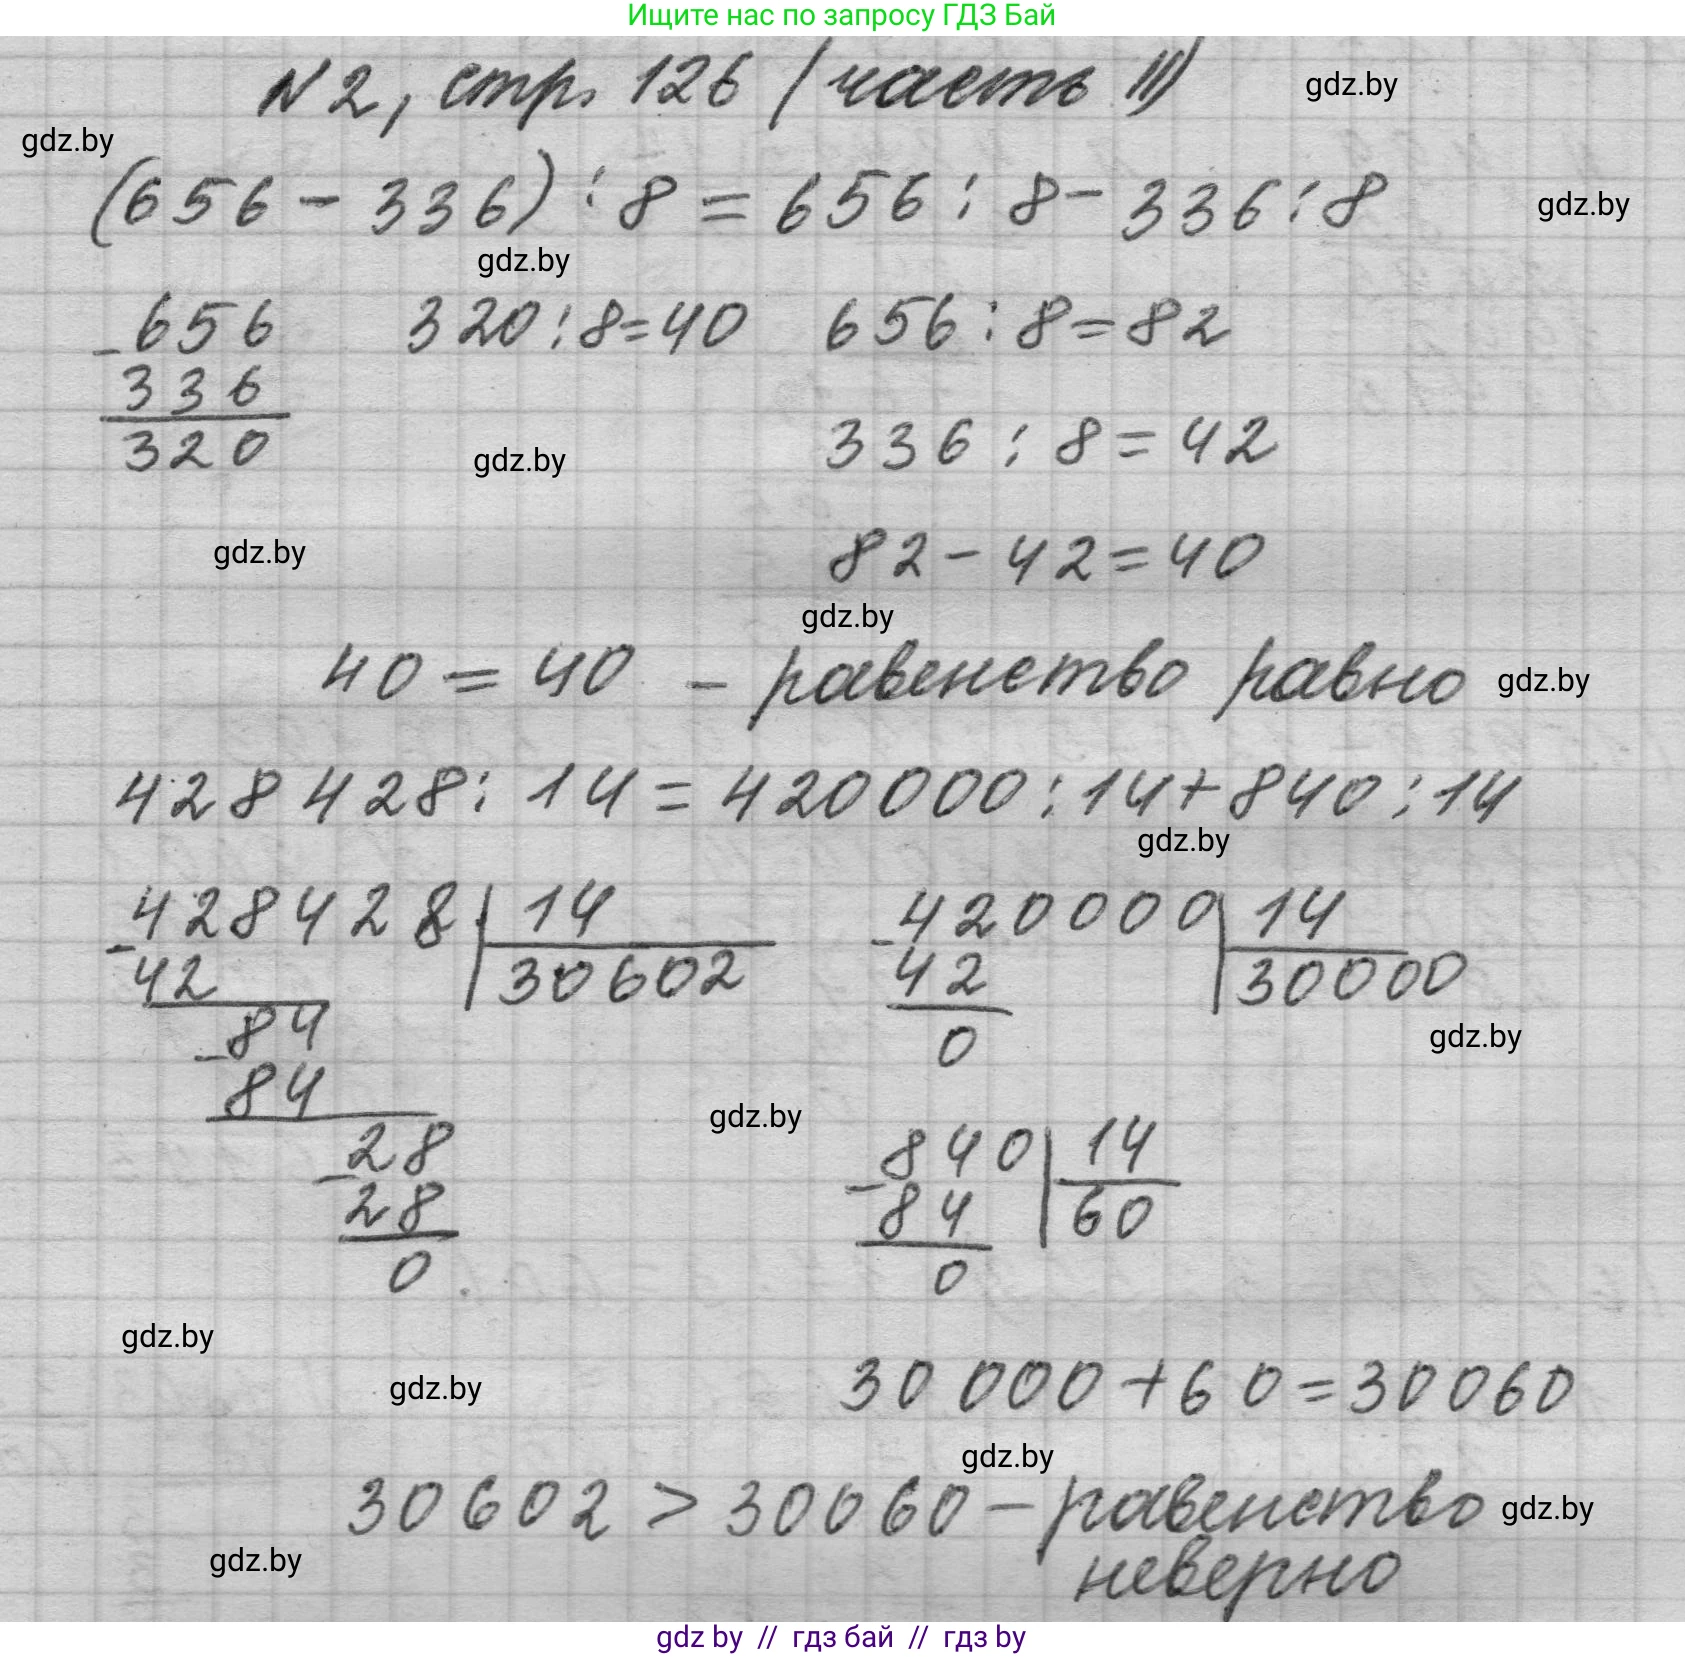 Ищите нас по запросу ГДЗ Бай
N2, стр. 126 (часть II)
gdz.by
gdz.by
(656 - 336) : 8 = 656 : 8 - 336 : 8
gdz.by
gdz.by
- 656
336
320
320 : 8 = 40
656 : 8 = 82
336 : 8 = 42
gdz.by
82 - 42 = 40
gdz.by
gdz.by
40 = 40 - равенство равно
gdz.by
428 428 : 14 = 420000 : 14 + 840 : 14
gdz.by
- 428428 | 14
42 | 30602
- 84
84
- 28
28
0
- 420000 | 14
42 | 30000
0
gdz.by
gdz.by
- 840 | 14
84 | 60
0
gdz.by
gdz.by
30 000 + 60 = 30060
gdz.by
30602 > 30060 - равенство
gdz.by
неверно
gdz.by
gdz by // гдз бай // гдз by